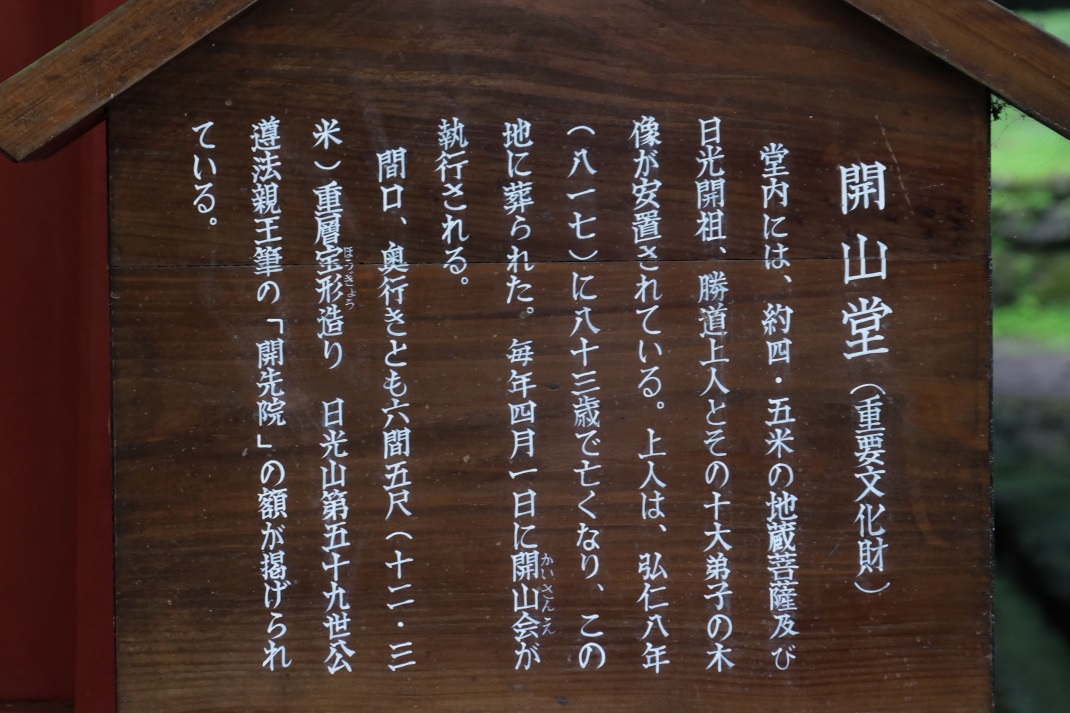 開山堂（重要文化財）
堂内には、約四・五米の地蔵菩薩及び
日光開祖、勝道上人とその十大弟子の木
像が安置されている。上人は、弘仁八年
（八一七）に八十三歳で亡くなり、この
地に葬られた。毎年四月一日に開山会が
かいさんえ
執行される。
間口、奥行きとも六間五尺（十二・三
米）重層宝形造り　日光山第五十九世公
ほうぎょう
遵法親王筆の「開先院」の額が掲げられ
ている。